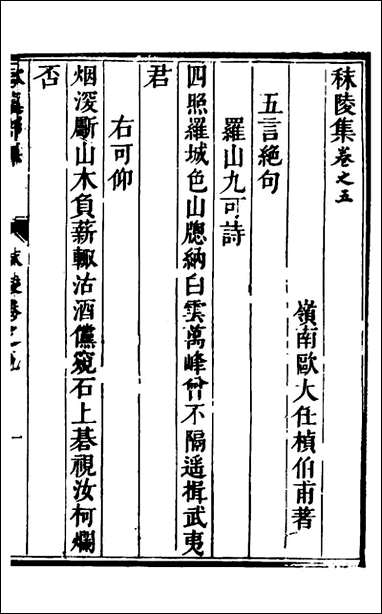 秣陵集卷之五
嶺南歐大任楨伯甫著
五言絕句
羅山九可詩
四照羅城色山牕納白雲萬峰曾不隔遥揖武夷
君
右可仰
烟深斸山木負薪輙沽酒儻窺石上碁視汝柯爛
否
一